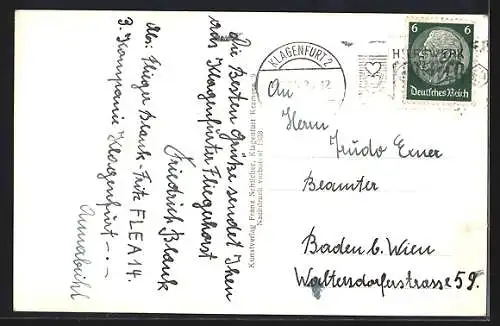 Die Besten Grüße sendet Ihnen
aus Klagenfurter Fliegerhorst
Friedrich Blank
Abs: Flieger Blank Fritz FLEA 14.
3. Kompanie Klagenfurt - . -
Annabichl
Kunstverlag Franz Schilcher, Klagenfurt
Nachdruck verboten! 1938
KLAGENFURT 2
6 6
Deutsches Reich
An
Herrn
Exner
Beamter
Baden b. Wien
Waltersdorferstrasse 59.